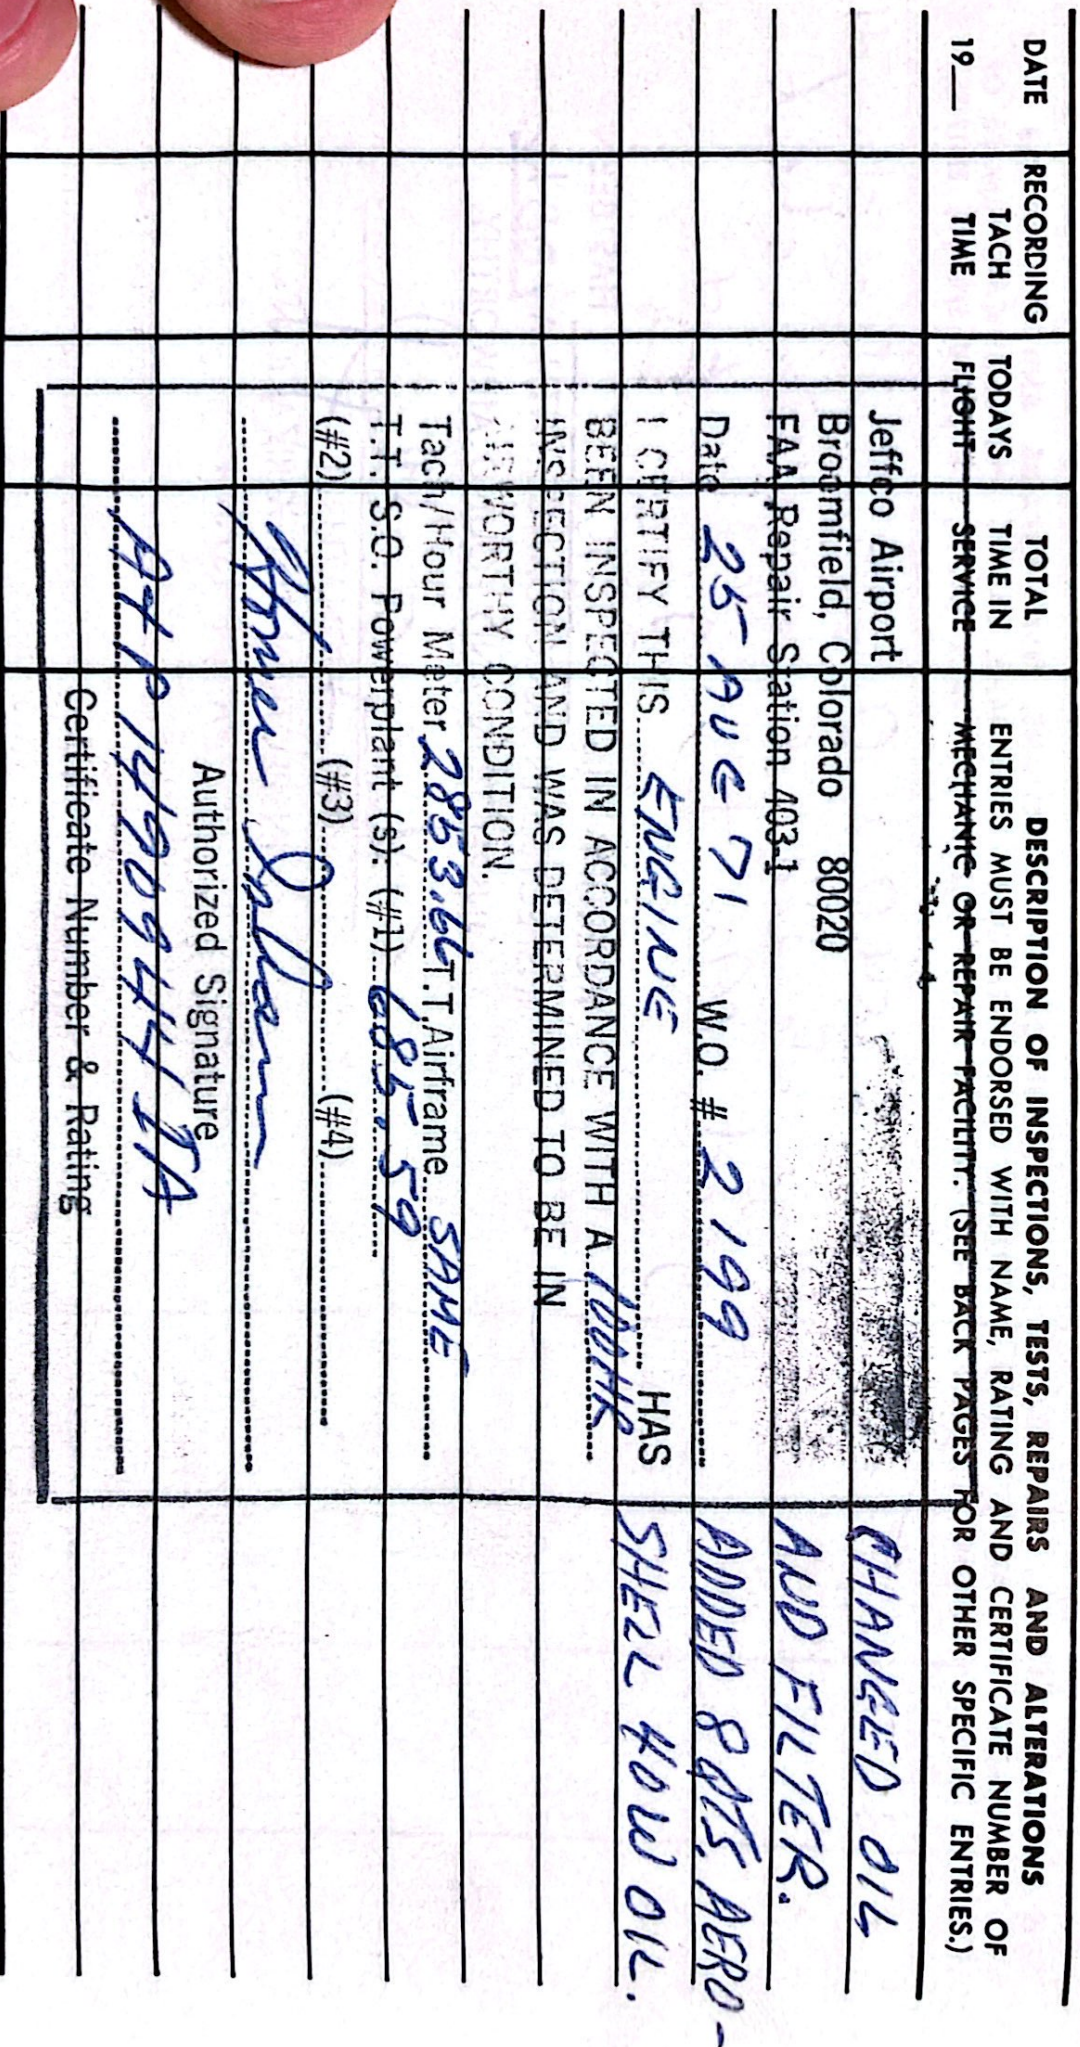 DATE RECORDING TODAYS TOTAL DESCRIPTION OF INSPECTIONS, TESTS, REPAIRS AND ALTERATIONS
TACH TIME IN ENTRIES MUST BE ENDORSED WITH NAME, RATING AND CERTIFICATE NUMBER OF
19__ TIME FLIGHT SERVICE MECHANIC OR REPAIR FACILITY. (SEE BACK PAGES FOR OTHER SPECIFIC ENTRIES.)
Jeffco Airport
Broomfield, Colorado 80020
FAA Repair Station 403-1
Date 25 AUG 71 W.O. # 2199
I CERTIFY THIS ENGINE HAS
BEEN INSPECTED IN ACCORDANCE WITH A 100HR
INSPECTION AND WAS DETERMINED TO BE IN
AIRWORTHY CONDITION.
Tach/Hour Meter 2853.66 T.T. Airframe SAME
T.T. S.O. Powerplant (s). (#1) 685.59
(#2) (#3) (#4)
Authorized Signature
A+P 1490944 IA
Certificate Number & Rating
CHANGED OIL
AND FILTER.
ADDED 8 QTS AERO-
SHELL 40W OIL.